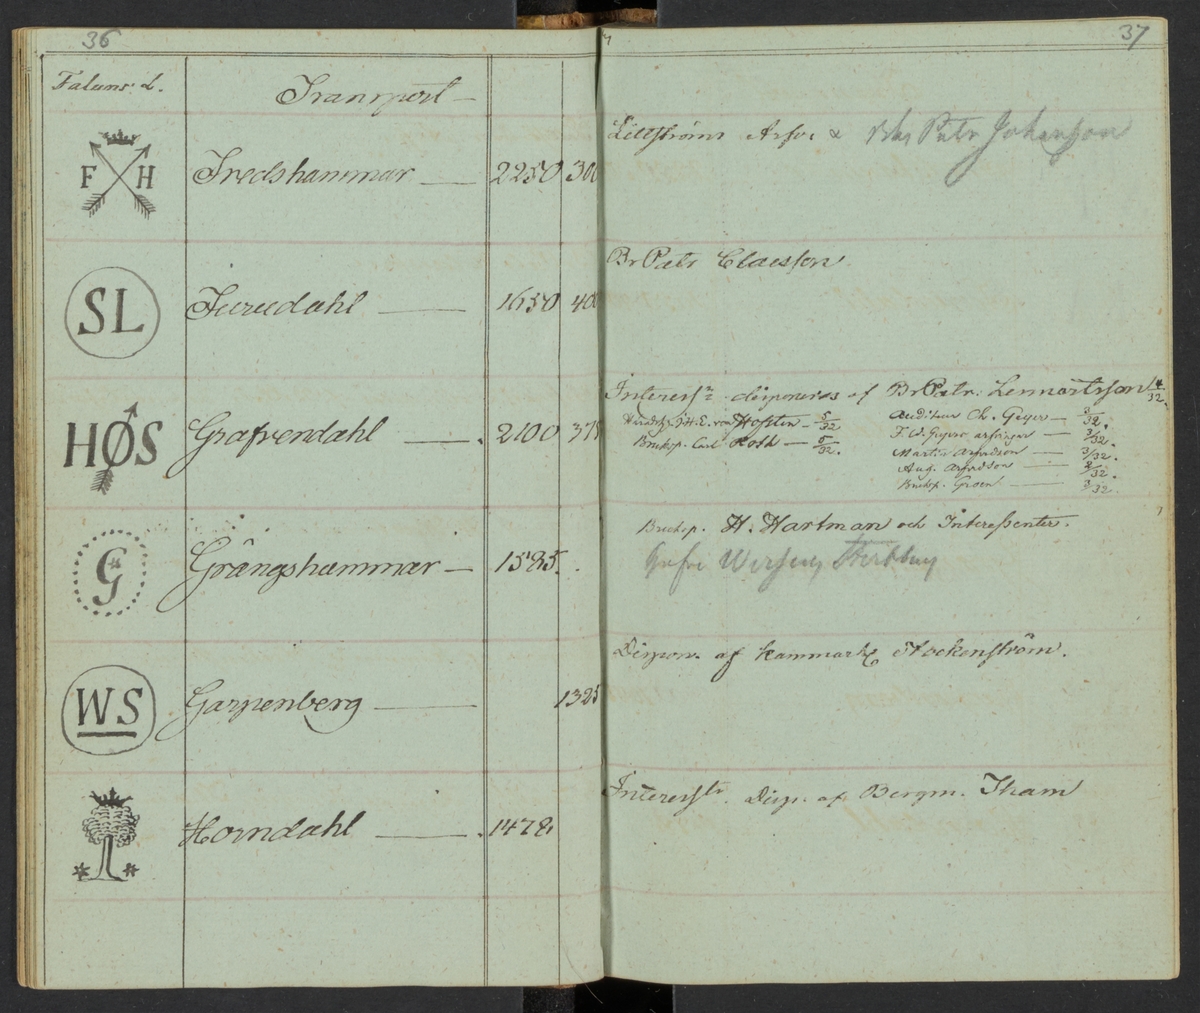 36
Faluns L.
Transport
F H Fredshammar 2250 300
SL Furudahl 1650 400
HOS Grafvendahl 2100 375
G Grångshammar 1585.
WS Garpenberg 1325
Horndahl 1478.
37
Littströms Arfv: & Patr Johansson
Br Patr Claesson
Interess:r disponeras af BrPatr. Lennartsson 4/32.
von Hofsten 5/32
Bruksp. Carl Roth 5/32.
Auditeur Ch. Geijer 3/32.
F. W. Geijers arfvingar 3/32.
Martin Arfvidson 3/32.
Aug. Arfvidson
Bruksp. Groen 3/32.
Bruksp. H. Hartman och Interessenter.
Grefve
Dispon. af Kammarh: Stockenström.
Interess:r Disp. af Bergm. Tham